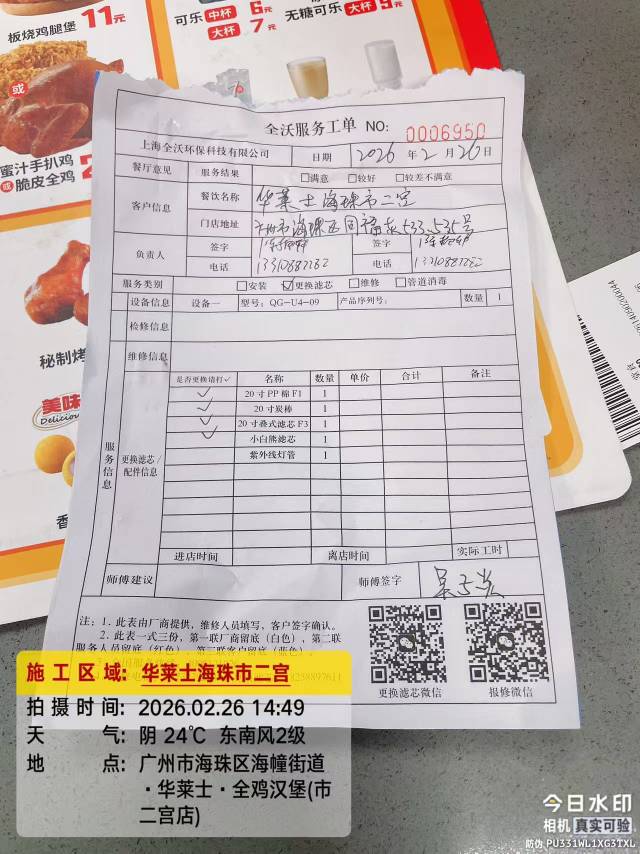 板烧鸡腿堡
11元
可乐 中杯 6元
大杯 7元
无糖可乐
大杯 9元
或
蜜汁手扒鸡
或 脆皮全鸡
秘制烤
美味
Delicious
香
全沃服务工单 NO: 0006950
上海全沃环保科技有限公司 日期 2026年2月26日
餐厅意见 服务结果 □满意 □较好 □较差不满意
客户信息 餐饮名称 华莱士海珠市二宫
门店地址 广州市海珠区同福东533、535号
负责人 签字 签字
电话 13710887282 电话 13710887282
服务类别 □安装 ☑更换滤芯 □维修 □管道消毒
设备信息 设备一 型号：QG-U4-09 产品序列号： 数量 1
检修信息
维修信息
服务信息
更换滤芯/配件信息
是否更换请打✓ 名称 数量 单价 合计 备注
✓ 20寸PP棉F1 1
✓ 20寸炭棒 1
✓ 20寸叠式滤芯F3 1
✓ 小白熊滤芯 1
紫外线灯管 1
进店时间 离店时间 实际工时
师傅建议 师傅签字
注：1、此表由厂商提供，维修人员填写，客户签字确认。
2、此表一式三份，第一联厂商留底（白色），第二联
服务人员留底（红色），第三联客户留底（蓝色）。
更换滤芯微信
报修微信
施工区域: 华莱士海珠市二宫
拍摄时间: 2026.02.26 14:49
天气: 阴 24℃ 东南风2级
地点: 广州市海珠区海幢街道
·华莱士·全鸡汉堡(市
二宫店)
今日水印
相机 真实可验
防伪 PU331WL1XG3TXL